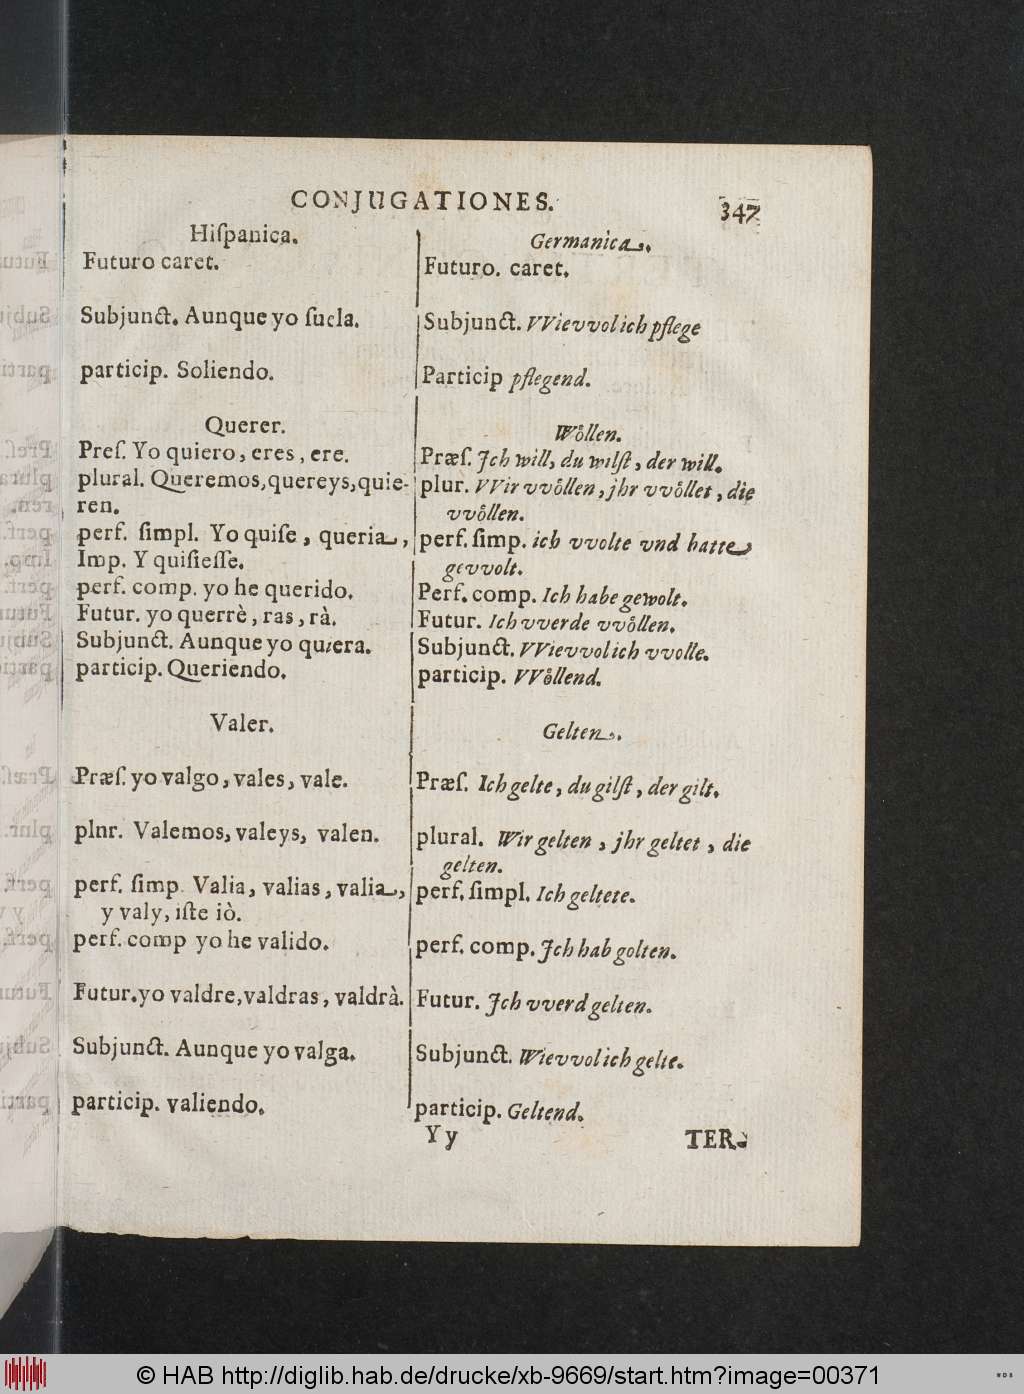 CONJUGATIONES.
347
Hiſpanica.
Futuro caret.
Subjunct. Aunque yo ſuela.
particip. Soliendo.
Querer.
Preſ. Yo quiero, eres, ere.
plural. Queremos, quereys, quie-
ren.
perf. ſimpl. Yo quiſe, queria,
Imp. Y quiſieſſe.
perf. comp. yo he querido.
Futur. yo querrè, ras, rà.
Subjunct. Aunque yo quiera.
particip. Queriendo.
Valer.
Præſ. yo valgo, vales, vale.
plnr. Valemos, valeys, valen.
perf. ſimp. Valia, valias, valia,
y valy, iſte iò.
perf. comp yo he valido.
Futur. yo valdre, valdras, valdrà.
Subjunct. Aunque yo valga.
particip. valiendo.
Germanica.
Futuro. caret.
Subjunct. VVievvol ich pflege
Particip pflegend.
Woͤllen.
Præſ. Jch will, du wilſt, der will.
plur. VVir vvoͤllen, jhr vvoͤllet, die
vvoͤllen.
perf. ſimp. ich vvolte vnd hatte
gevvolt.
Perf. comp. Ich habe gewolt.
Futur. Ich vverde vvoͤllen.
Subjunct. VVievvol ich vvolle.
particip. VVoͤllend.
Gelten.
Præſ. Ich gelte, du gilſt, der gilt.
plural. Wir gelten, jhr geltet, die
gelten.
perf. ſimpl. Ich geltete.
perf. comp. Jch hab golten.
Futur. Jch vverd gelten.
Subjunct. Wievvol ich gelte.
particip. Geltend.
Yy
TER-
© HAB http://diglib.hab.de/drucke/xb-9669/start.htm?image=00371